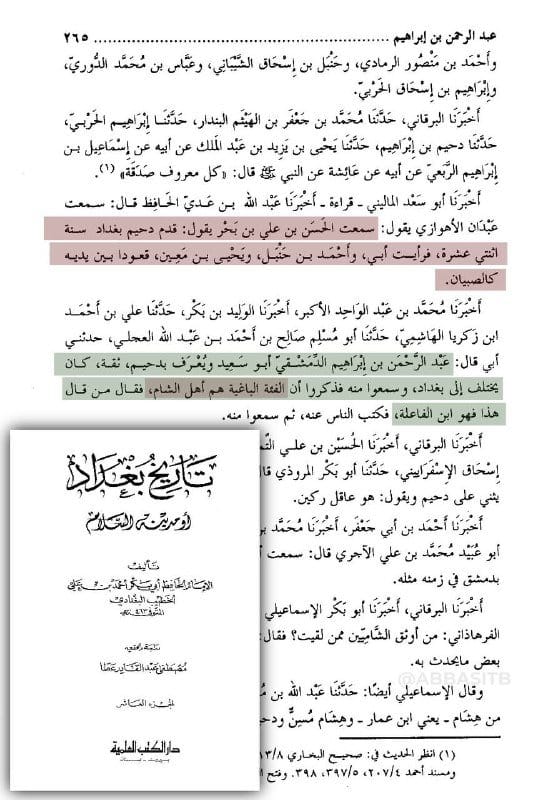 عبد الرحمن بن إبراهيم ........................................ ٢٦٥
وأَحْمَد بن مَنْصُور الرمادي، وحَنْبَل بن إِسْحَاق الشَّيْبَانِي، وعَبَّاس بن مُحَمَّد الدُّورِيّ،
وإِبْرَاهِيم بن إِسْحَاق الحَرْبِيّ.
أَخْبَرَنَا البرقاني، حَدَّثَنَا مُحَمَّد بن جَعْفَر بن الهَيْثَم البندار، حَدَّثَنَا إِبْرَاهِيم الحَرْبِيّ،
حَدَّثَنَا دحيم بن إِبْرَاهِيم، حَدَّثَنَا يَحْيَى بن يَزِيد بن عَبْد المَلك عن أبيه عن إِسْمَاعِيل بن
إِبْرَاهِيم الرَّبَعِيّ عن أبيه عن عَائِشَة عن النبي ﷺ قال: «كل معروف صَدَقَة» (١).
أَخْبَرَنَا أبو سَعْد الماليني - قراءة - أَخْبَرَنَا عَبْد الله بن عَدِيّ الحَافِظ قال: سمعت
عَبْدَان الأهوازي يقول: سمعت الحَسَن بن علي بن بَحْر يقول: قدم دحيم بغداد سنة
اثنتي عشرة، فرأيت أبي، وأَحْمَد بن حَنْبَل، ويَحْيَى بن مَعِين، قعودا بين يديه
كالصبيان.
أَخْبَرَنَا مُحَمَّد بن عَبْد الواحِد الأكبر، أَخْبَرَنَا الوليد بن بَكْر، حَدَّثَنَا علي بن أَحْمَد
ابن زكريا الهَاشِمِيّ، حَدَّثَنَا أبو مُسْلِم صَالِح بن أَحْمَد بن عَبْد الله العجلي، حدثني
أبي قال: عَبْد الرَّحْمَن بن إِبْرَاهِيم الدِّمَشْقِيّ أبو سَعِيد ويُعْرَف بدحيم، ثقة، كان
يختلف إلى بغداد، وسمعوا منه فذكروا أن الفئة الباغية هم أهل الشام، فقال من قال
هذا فهو ابن الفاعلة، فكتب الناس عنه، ثم سمعوا منه.
أَخْبَرَنَا البرقاني، أَخْبَرَنَا الحُسَيْن بن علي
إِسْحَاق الإِسْفَرايِيني، حَدَّثَنَا أبو بَكْر المروذي قال
يثني على دحيم ويقول: هو عاقل ركين.
أَخْبَرَنَا أَحْمَد بن أبي جَعْفَر، أَخْبَرَنَا مُحَمَّد
أبو عُبَيْد مُحَمَّد بن علي الآجري قال: سمعت
بدمشق في زمنه مثله.
أَخْبَرَنَا البرقاني، أَخْبَرَنَا أبو بَكْر الإسماعيلي
الفرهاذاني: من أوثق الشَّامِيِّين ممن لقيت؟ فقال:
بعض مايحدث به.
@ABBASITB
وقال الإسماعيلي أيضًا: حَدَّثَنَا عَبْد الله بن
من هِشَام - يعني ابن عمار - وهِشَام مُسِنٌّ
(١) انظر الحديث في: صحيح البخاري ١٣/٨
ومسند أحمد ٢٠٧/٤، ٣٩٧/٥، ٣٩٨. وفتح
تاريخ بغداد
أو مدينة السلام
تأليف
الإمام الحافظ أبي بكر أحمد بن علي
الخطيب البغدادي
المتوفى ٤٦٣ هـ
دراسة وتحقيق
مصطفى عبد القادر عطا
الجزء العاشر
دار الكتب العلمية
بيروت - لبنان